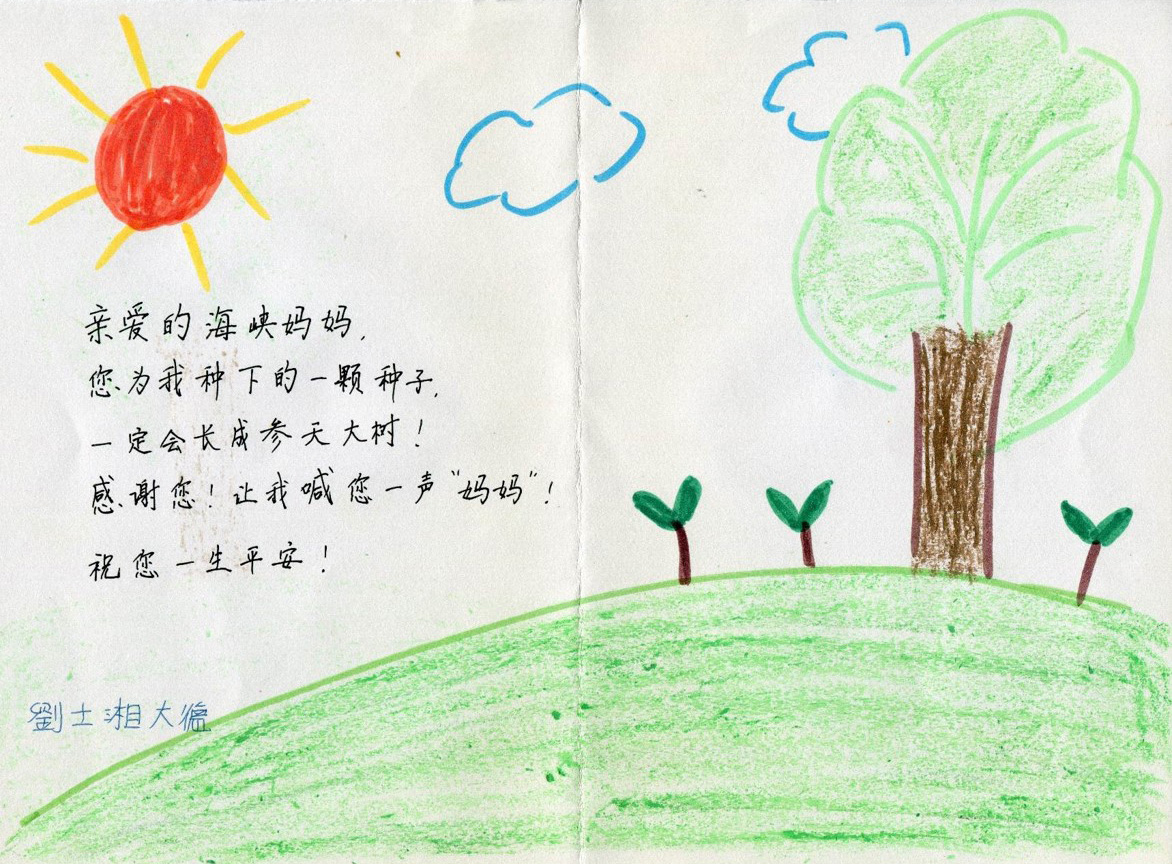 亲爱的海峡妈妈,
您为我种下的一颗种子,
一定会长成参天大树！
感谢您！让我喊您一声“妈妈”！
祝您一生平安！
劉士湘大